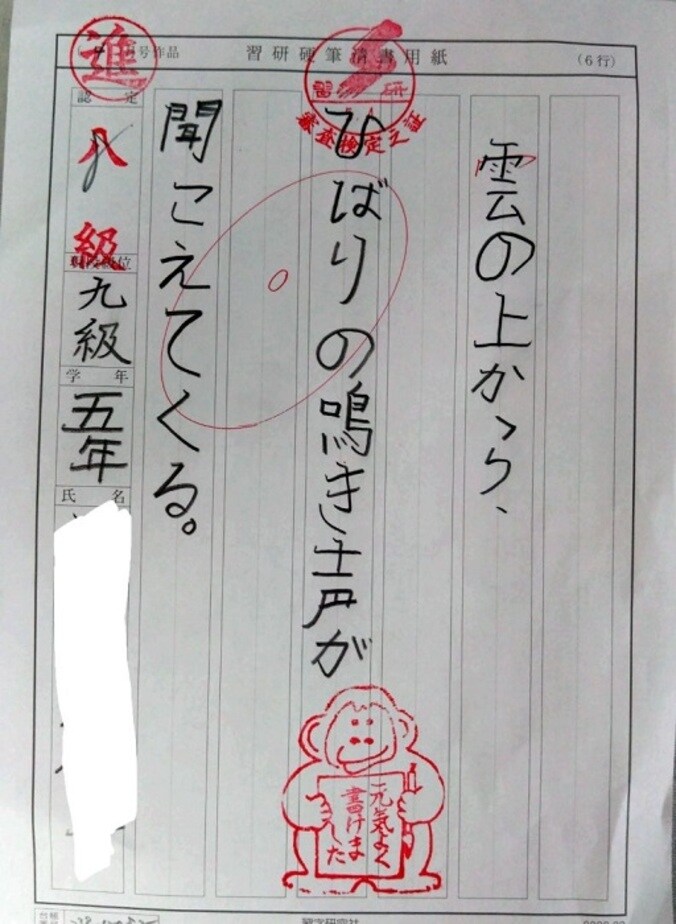 習研硬筆清書用紙
(6行)
月号作品
進
審査検定之証
雲の上から、
ひばりの鳴き声が
聞こえてくる。
認定
八級
現段級位
九級
学年
五年
氏名
元気よく
書けました